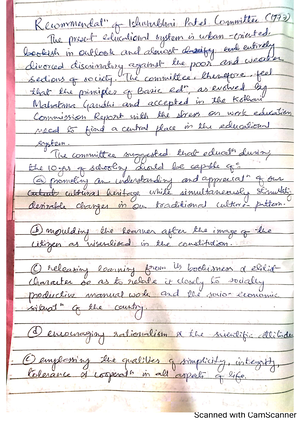 Recommendatⁿ of Ishwarbhai Patel Committee (1977)
The present educational system is urban-oriented
bookish in outlook and almost entirely
divorced discriminatory against the poor and weaker
sections of society. The committee therefore, feel
that the principles of basic edⁿ as evolved by
Mahatma Gandhi and accepted in the Kothari
Commission Report with the stress on work education
need to find a central place in the educational
system.
The committee suggested that educatⁿ during
the 10 yrs of schooling should be capable of:-
(a) promoting an understanding and appreciatⁿ of our
cultural heritage while simultaneously
desirable changes in our traditional culture pattern.
(b) moulding the learner after the image of the
citizen as visualised in the constitution.
(c) releasing learning from its bookishness & elitist
character so as to relate it closely to socially
productive manual work and the socio-economic
situatⁿ of the country.
(d) encouraging rationalism & the scientific attitudes
(e) emphasing the qualities of simplicity, integrity,
tolerance & cooperatⁿ in all aspects of life.
Scanned with CamScanner